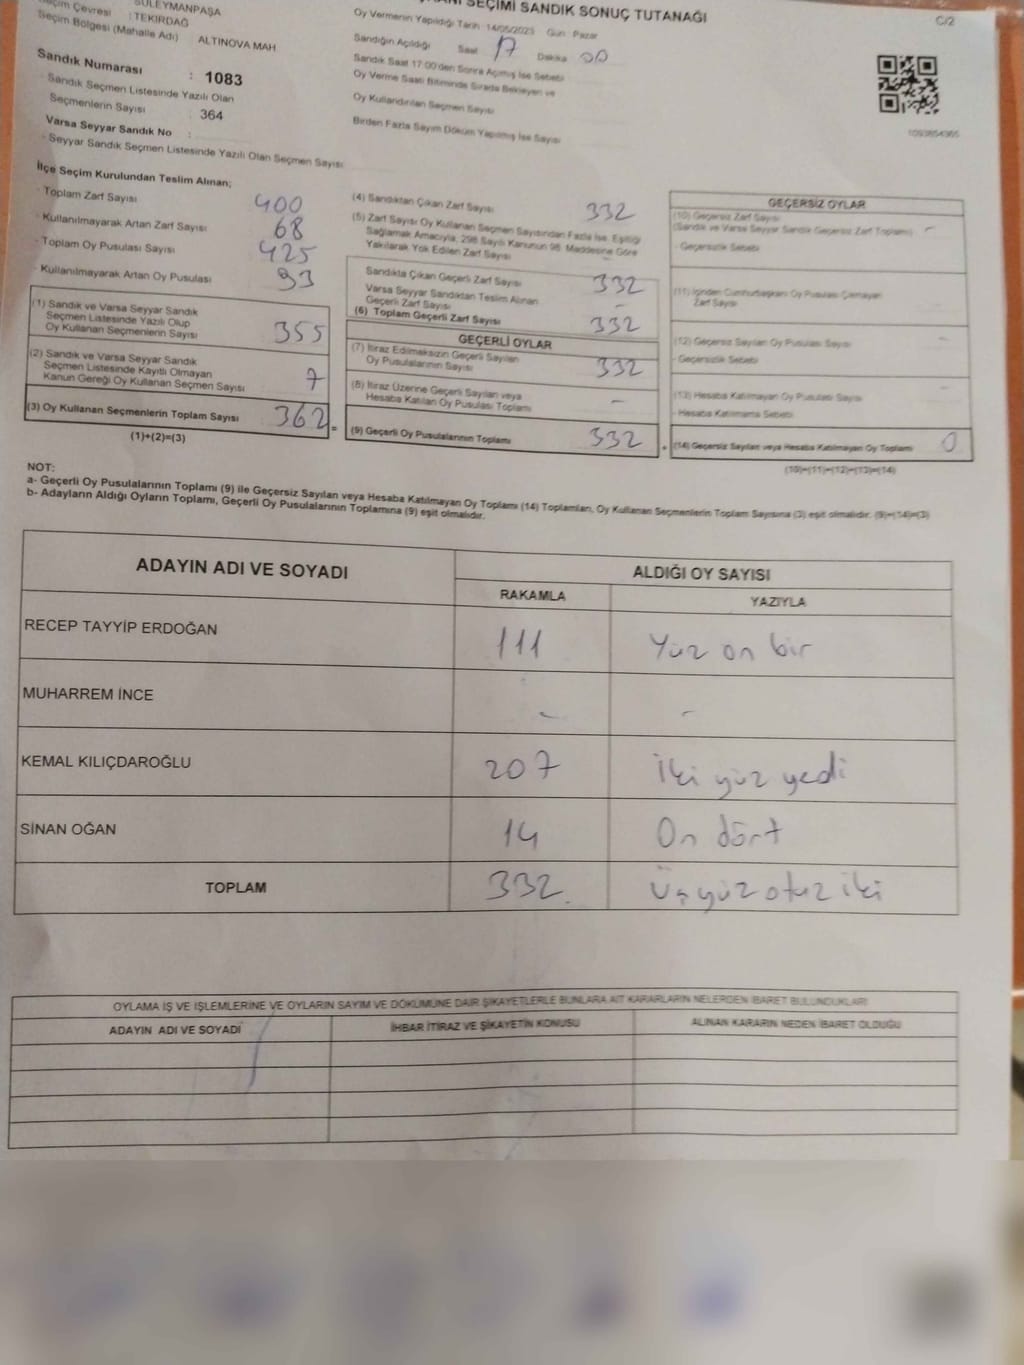 SEÇİMİ SANDIK SONUÇ TUTANAĞI
C/2
SÜLEYMANPAŞA
Seçim Çevresi : TEKİRDAĞ
Seçim Bölgesi (Mahalle Adı) ALTINOVA MAH.
Sandık Numarası : 1083
Sandık Seçmen Listesinde Yazılı Olan
Seçmenlerin Sayısı : 364
Varsa Seyyar Sandık No :
- Seyyar Sandık Seçmen Listesinde Yazılı Olan Seçmen Sayısı
Oy Vermenin Yapıldığı Tarih : 14/05/2023 Gün : Pazar
Sandığın Açıldığı Saat 17 Dakika 00
Sandık Saat 17:00'den Sonra Açılmış İse Sebebi
Oy Verme Saati Bitiminde Sırada Bekleyen ve
Oy Kullandırılan Seçmen Sayısı
Birden Fazla Sayım Döküm Yapılmış İse Sayısı
İlçe Seçim Kurulundan Teslim Alınan;
- Toplam Zarf Sayısı 400
- Kullanılmayarak Artan Zarf Sayısı 68
- Toplam Oy Pusulası Sayısı 425
- Kullanılmayarak Artan Oy Pusulası 93
(1) Sandık ve Varsa Seyyar Sandık
Seçmen Listesinde Yazılı Olup
Oy Kullanan Seçmenlerin Sayısı 355
(2) Sandık ve Varsa Seyyar Sandık
Seçmen Listesinde Kayıtlı Olmayan
Kanun Gereği Oy Kullanan Seçmen Sayısı 7
(3) Oy Kullanan Seçmenlerin Toplam Sayısı 362 =
(1)+(2)=(3)
(4) Sandıktan Çıkan Zarf Sayısı 332
(5) Zarf Sayısı Oy Kullanan Seçmen Sayısından Fazla İse, Eşitliği
Sağlamak Amacıyla, 298 Sayılı Kanunun 98. Maddesine Göre
Yakılarak Yok Edilen Zarf Sayısı –
Sandıkta Çıkan Geçerli Zarf Sayısı 332
Varsa Seyyar Sandıktan Teslim Alınan
Geçerli Zarf Sayısı –
(6) Toplam Geçerli Zarf Sayısı 332
GEÇERLİ OYLAR
(7) İtiraz Edilmeksizin Geçerli Sayılan
Oy Pusulalarının Sayısı 332
(8) İtiraz Üzerine Geçerli Sayılan veya
Hesaba Katılan Oy Pusulası Toplamı –
(9) Geçerli Oy Pusulalarının Toplamı 332 +
GEÇERSİZ OYLAR
(10) Geçersiz Zarf Sayısı
(Sandık ve Varsa Seyyar Sandık Geçersiz Zarf Toplamı) –
- Geçersizlik Sebebi
(11) İçinden Cumhurbaşkanı Oy Pusulası Çıkmayan
Zarf Sayısı –
(12) Geçersiz Sayılan Oy Pusulası Sayısı –
- Geçersizlik Sebebi
(13) Hesaba Katılmayan Oy Pusulası Sayısı –
- Hesaba Katılmama Sebebi
(14) Geçersiz Sayılan veya Hesaba Katılmayan Oy Toplamı 0
(10)+(11)+(12)+(13)=(14)
NOT:
a- Geçerli Oy Pusulalarının Toplamı (9) ile Geçersiz Sayılan veya Hesaba Katılmayan Oy Toplamı (14) Toplamları, Oy Kullanan Seçmenlerin Toplam Sayısına (3) eşit olmalıdır. (9)+(14)=(3)
b- Adayların Aldığı Oyların Toplamı, Geçerli Oy Pusulalarının Toplamına (9) eşit olmalıdır.
ADAYIN ADI VE SOYADI ALDIĞI OY SAYISI
RAKAMLA YAZIYLA
RECEP TAYYİP ERDOĞAN 111 Yüz on bir
MUHARREM İNCE – –
KEMAL KILIÇDAROĞLU 207 İki yüz yedi
SİNAN OĞAN 14 On dört
TOPLAM 332 Üç yüz otuz iki
OYLAMA İŞ VE İŞLEMLERİNE VE OYLARIN SAYIM VE DÖKÜMÜNE DAİR ŞİKAYETLERLE BUNLARA AİT KARARLARIN NELERDEN İBARET BULUNDUKLARI
ADAYIN ADI VE SOYADI İHBAR İTİRAZ VE ŞİKAYETİN KONUSU ALINAN KARARIN NEDEN İBARET OLDUĞU